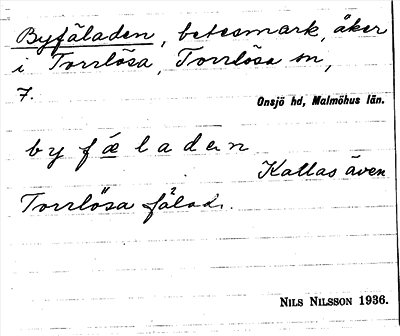 Byfäladen, betesmark, åker
i Torrlösa, Torrlösa sn,
7.
Onsjö hd, Malmöhus län.
by fǽladen
Kallas även
Torrlösa fälad.
NILS NILSSON 1936.